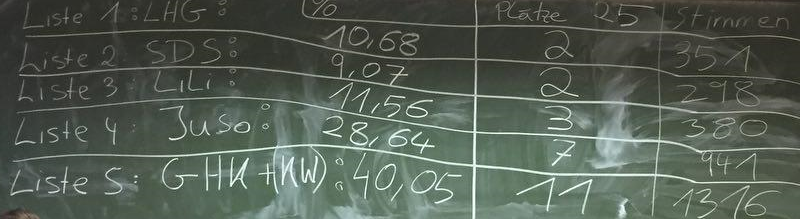 Liste 1: LHG: % Plätze 25 Stimmen
10,68 2 351
Liste 2 SDS: 9,07 2 298
Liste 3: LiLi: 11,56 3 380
Liste 4: Juso: 28,64 7 941
Liste 5: GHK+(KW): 40,05 11 1316